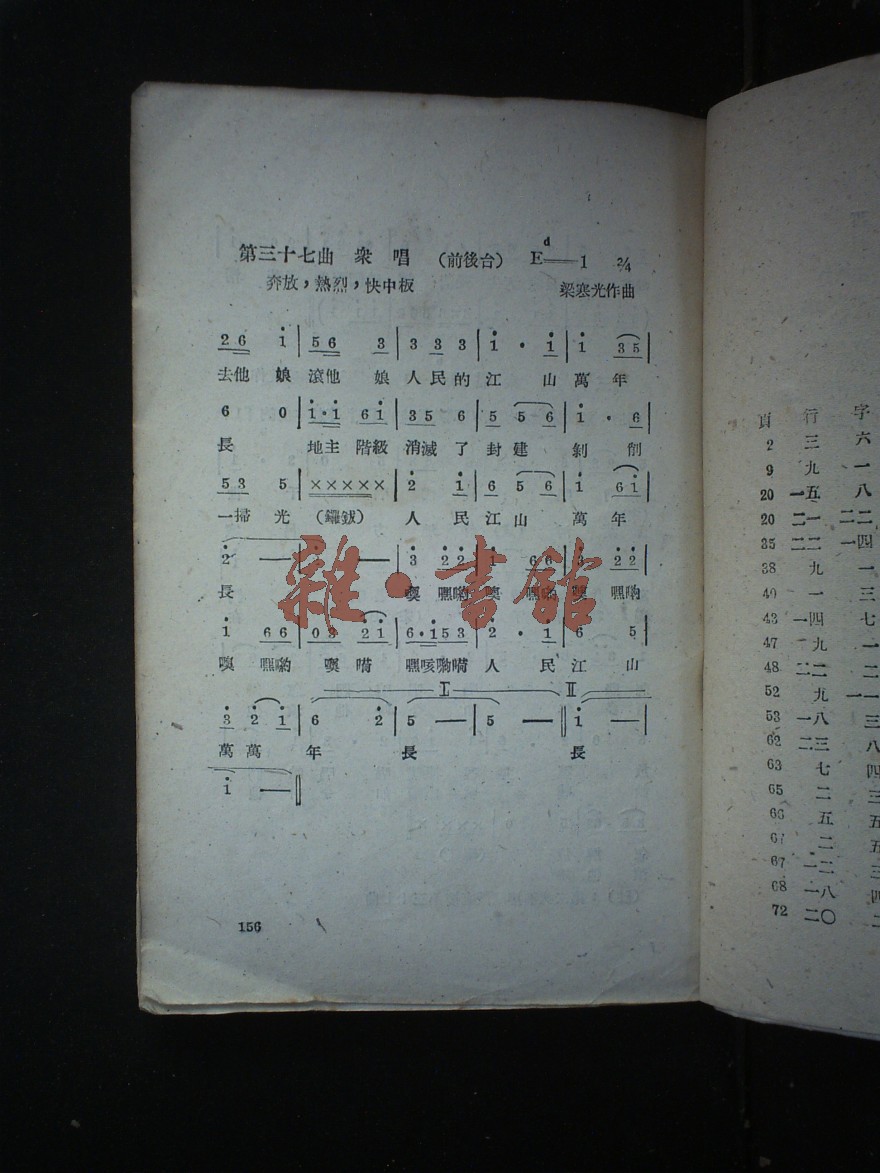 第三十七曲 衆唱 (前後台) E d——1 2/4
奔放,熱烈,快中板 梁寒光作曲
2 6 i | 5 6 3 | 3 3 3 | i · i | i 3 5 |
去他 娘 滾他 娘 人民的 江 山 萬 年
6 0 | i · i 6 i | 3 5 6 | 5 5 6 | i · 6 |
長 地主 階級 消滅 了 封 建 剝 削
5 3 5 | ××××× | 2 i | 6 5 6 | i 6 i |
一掃 光 (鑼鈸) 人 民 江 山 萬 年
2 — | — | 3 2 2 | 6 6 | 2 2 |
長 嘿喲 嘿喲 嘿喲
i 6 6 | 0 3 2 i | 6 · i 5 3 | 2 · i | 6 5 |
嘿喲 嗬 嘿咳喲嗬 人 民 江 山
I II
3 2 i | 6 2 | 5 — | 5 — || i — |
萬 萬 年 長 長
i — ||
156
雜·書館
頁 行 字
2 三 六
9 九 一
20 一五 八
20 二一 二二
35 二二 一四
38 九 一
40 一 三
43 一四 七
47 九 一
48 二二 二
52 九 一一
53 一八 三
62 二三 八
63 七 四
65 二 三
66 五 五
67 二 五
67 一二 三
68 一八 四
72 二〇 二